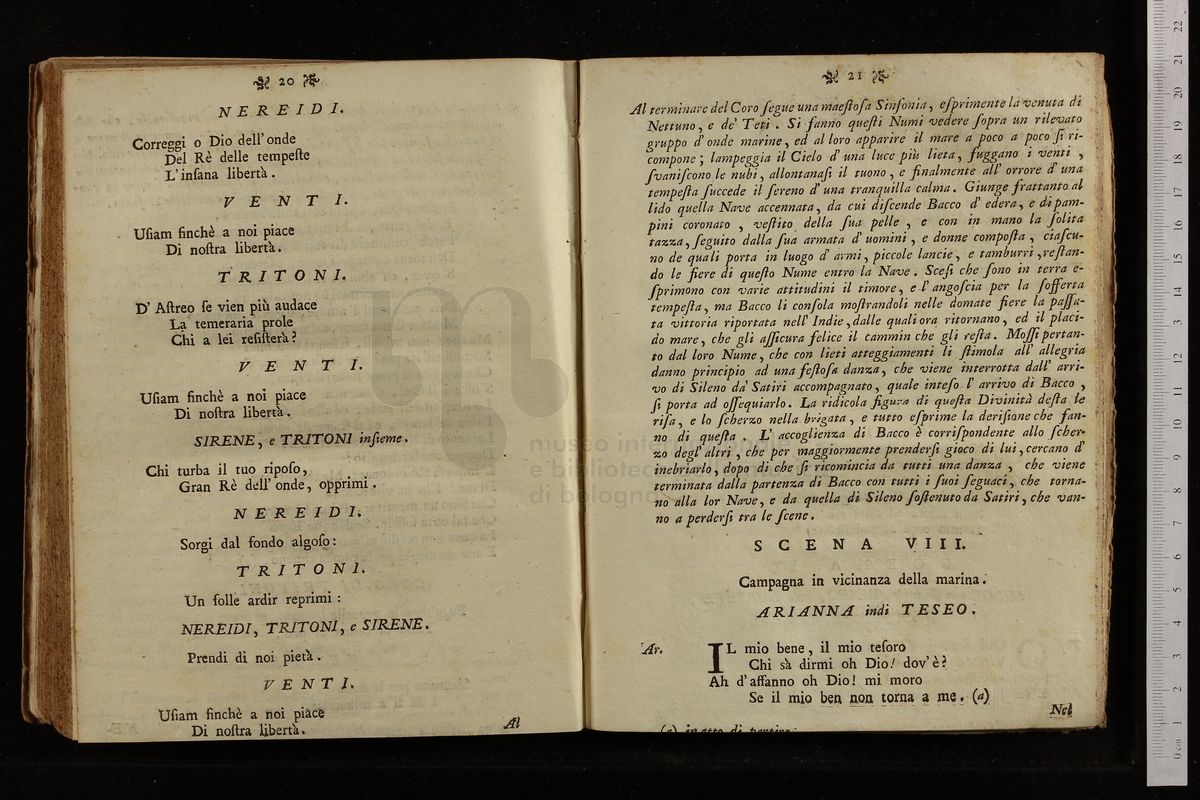 20
NEREIDI.
Correggi o Dio dell'onde
Del Rè delle tempeſte
L'inſana libertà.
VENTI.
Uſiam finchè a noi piace
Di noſtra libertà.
TRITONI.
D'Aſtreo ſe vien più audace
La temeraria prole
Chi a lei reſiſterà?
VENTI.
Uſiam finchè a noi piace
Di noſtra libertà.
SIRENE, e TRITONI inſieme.
Chi turba il tuo ripoſo,
Gran Rè dell'onde, opprimi.
NEREIDI.
Sorgi dal fondo algoſo:
TRITONI.
Un folle ardir reprimi:
NEREIDI, TRITONI, e SIRENE.
Prendi di noi pietà.
VENTI.
Uſiam finchè a noi piace
Di noſtra libertà.
Al
21
Al terminare del Coro ſegue una maeſtoſa Sinfonia, eſprimente la venuta di
Nettuno, e de' Teti. Si fanno queſti Numi vedere ſopra un rilevato
gruppo d'onde marine, ed al loro apparire il mare a poco a poco ſi ri-
compone; lampeggia il Cielo d'una luce più lieta, fuggano i venti,
ſvaniſcono le nubi, allontanaſi il tuono, e finalmente all'orrore d'una
tempeſta ſuccede il ſereno d'una tranquilla calma. Giunge frattanto al
lido quella Nave accennata, da cui diſcende Bacco d'edera, e di pam-
pini coronato, veſtito della ſua pelle, e con in mano la ſolita
tazza, ſeguito dalla ſua armata d'uomini, e donne compoſta, ciaſcu-
no de quali porta in luogo d'armi, piccole lancie, e tamburri, reſtan-
do le fiere di queſto Nume entro la Nave. Sceſi che ſono in terra e-
ſprimono con varie attitudini il timore, e l'angoſcia per la ſofferta
tempeſta, ma Bacco li conſola moſtrandoli nelle domate fiere la paſſa-
ta vittoria riportata nell'Indie, dalle quali ora ritornano, ed il placi-
do mare, che gli aſſicura felice il cammin che gli reſta. Moſſi pertan-
to dal loro Nume, che con lieti atteggiamenti li ſtimola all'allegria
danno principio ad una feſtoſa danza, che viene interrotta dall'arri-
vo di Sileno da' Satiri accompagnato, quale inteſo l'arrivo di Bacco,
ſi porta ad oſſequiarlo. La ridicola figura di queſta Divinità deſta le
riſa, e lo ſcherzo nella brigata, e tutto eſprime la deriſione che fan-
no di queſta. L'accoglienza di Bacco è corriſpondente allo ſcher-
zo degl'altri, che per maggiormente prenderſi gioco di lui, cercano d'
inebriarlo, dopo di che ſi ricomincia da tutti una danza, che viene
terminata dalla partenza di Bacco con tutti i ſuoi ſeguaci, che torna-
no alla lor Nave, e da quella di Sileno ſoſtenuto da Satiri, che van-
no a perderſi tra le ſcene.
SCENA VIII.
Campagna in vicinanza della marina.
ARIANNA indi TESEO.
Ar. IL mio bene, il mio teſoro
Chi sà dirmi oh Dio! dov'è?
Ah d'affanno oh Dio! mi moro
Se il mio ben non torna a me. (a)
Nel
(a) in atto di partire.